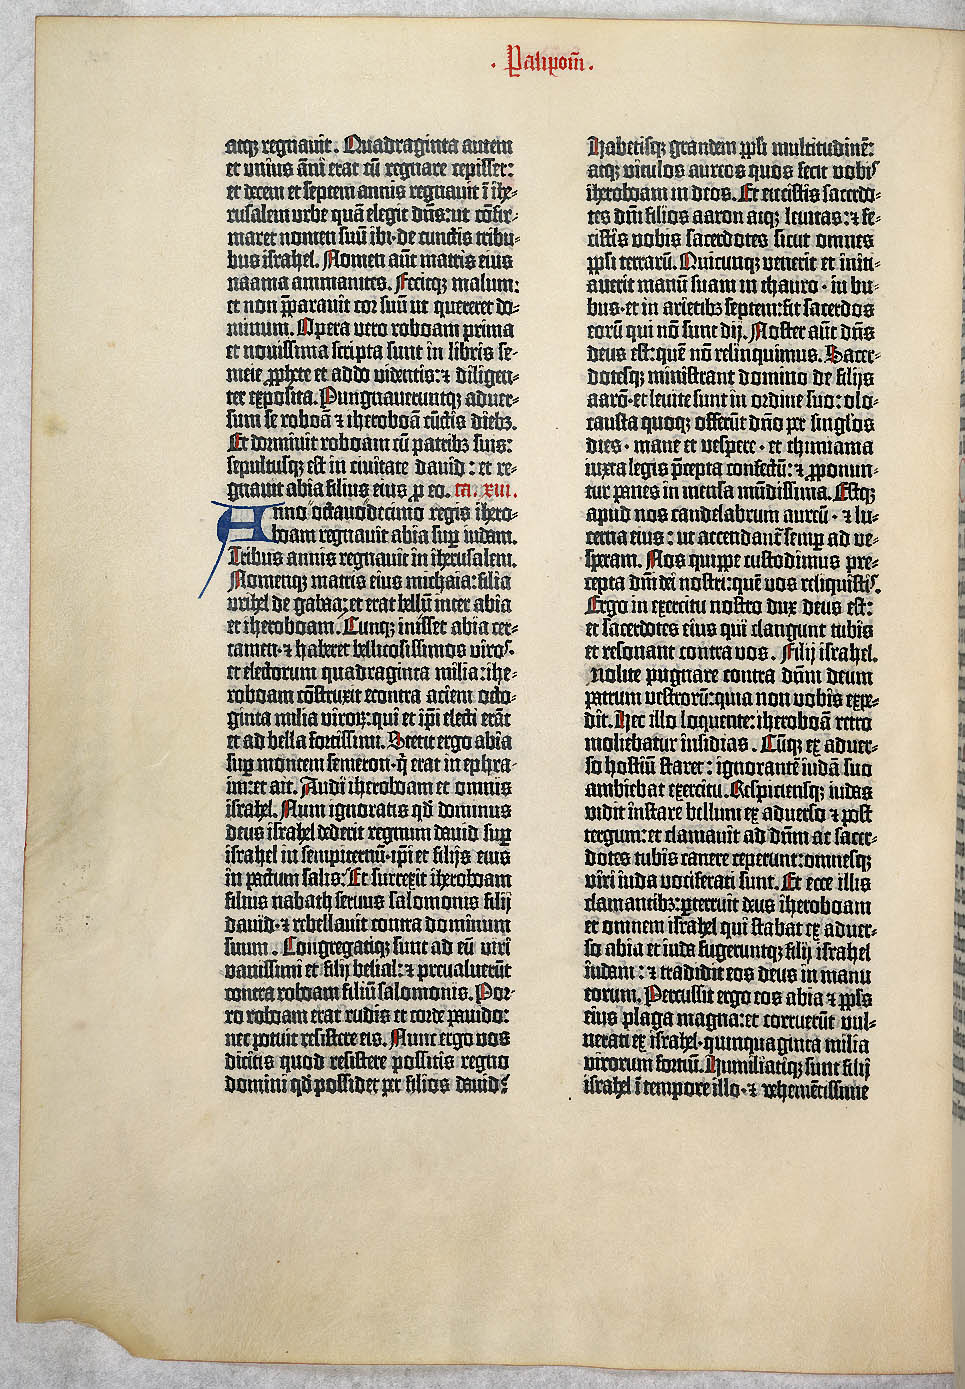 · Palipom̄ ·
atqꝫ regnauit. Quadraginta autem
et vnius āni erat cū regnare cepisset:
et decem et septem annis regnauit ī ihe-
rusalem vrbe quā elegit dn̄s: ut cōfir-
maret nomen suū ibi · de cunctis tribu-
bus israhel. Nomen aūt matris eius
naama ammanites. Fecitqꝫ malum:
et non p̄parauit cor suū ut quereret do-
minum. Opera vero roboam prima
et nouissima scripta sunt in libris se-
meie ꝓphete et addo videntis: ⁊ diligen-
ter exposita. Pungnaueruntqꝫ aduer-
sum se roboā ⁊ iheroboā cūctis diebꝫ.
Et dormiuit roboam cū patribꝫ suis:
sepultusqꝫ est in ciuitate dauid: et re-
gnauit abia filius eius ꝓ eo. ca. xiii.
Anno octauodecimo regis ihero-
boam regnauit abia suꝑ iudam.
Tribus annis regnauit in iherusalem.
Nomenqꝫ matris eius michaia: filia
vrihel de gabaa: et erat bellū inter abia
et iheroboam. Cunqꝫ inisset abia cer-
tamen · ⁊ haberet bellicosissimos viros.
et electorum quadraginta milia: ihe-
roboam cōstruxit econtra aciem octo-
ginta milia viroꝝ: qui et ip̄i electi erāt
et ad bella fortissimi. Stetit ergo abia
suꝑ montem semeron · q̄ erat in ephra-
im: et ait. Audi iheroboam et omnis
israhel. Num ignoratis qd̄ dominus
deus israhel dederit regnum dauid suꝑ
israhel in sempiternū · ip̄i et filijs eius
in pactum salis: Et surrexit iheroboam
filius nabath seruus salomonis filij
dauid · ⁊ rebellauit contra dominum
suum. Congregatiqꝫ sunt ad eū viri
vanissimi et filij belial: ⁊ preualuerūt
contra roboam filiū salomonis. Por-
ro roboam erat rudis et corde pauido:
nec potuit resistere eis. Nunc ergo vos
dicitis quod resistere possitis regno
domini qd̄ possidet per filios dauid:
Habetisqꝫ grandem pp̄li multitudinē:
atqꝫ vitulos aureos quos fecit vobis
iheroboam in deos. Et eiecistis sacerdo-
tes dn̄i filios aaron atqꝫ leuitas: ⁊ fe-
cistis vobis sacerdotes sicut omnes
pp̄li terrarū. Quicunqꝫ venerit et initi-
auerit manū suam in thauro · in bu-
bus · et in arietibꝫ septem: fit sacerdos
eorū qui nō sunt dij. Noster aūt dn̄s
deus est: quē nō relinquimus. Sacer-
dotesqꝫ ministrant domino de filijs
aarō · et leuite sunt in ordine suo: olo-
causta quoqꝫ offerūt dn̄o per singl̄os
dies · mane et vespere · et thimiama
iuxta legis p̄cepta confectū: ⁊ ꝓponun-
tur panes in mensa mūdissima. Estqꝫ
apud nos candelabrum aureū · ⁊ lu-
cerna eius: ut accendant̄ semꝑ ad ve-
speram. Nos quippe custodimus pre-
cepta dn̄i dei nostri: quē vos reliquistis.
Ergo in exercitu nostro dux deus est:
et sacerdotes eius qui clangunt tubis
et resonant contra vos. Filij israhel.
nolite pugnare contra dn̄m deum
patrum vestrorū: quia non vobis expe-
dit. Hec illo loquente: iheroboā retro
moliebatur insidias. Cūqꝫ ex aduer-
so hostiū staret: ignorantē iudā suo
ambiebat exercitu. Respiciensqꝫ iudas
vidit instare bellum ex aduerso ⁊ post
tergum: et clamauit ad dn̄m ac sacer-
dotes tubis canere ceperunt: omnesqꝫ
viri iuda vociferati sunt. Et ecce illis
clamantibꝫ: ꝑterruit deus iheroboam
et omnem israhel qui stabat ex aduer-
so abia et iuda fugeruntqꝫ filij israhel
iudam: ⁊ tradidit eos deus in manu
eorum. Percussit ergo eos abia ⁊ pp̄ls
eius plaga magna: et corruerūt vul-
nerati ex israhel · quinquaginta milia
virorum fortiū. Humiliatiqꝫ sunt filij
israhel ī tempore illo · ⁊ vehemētissime